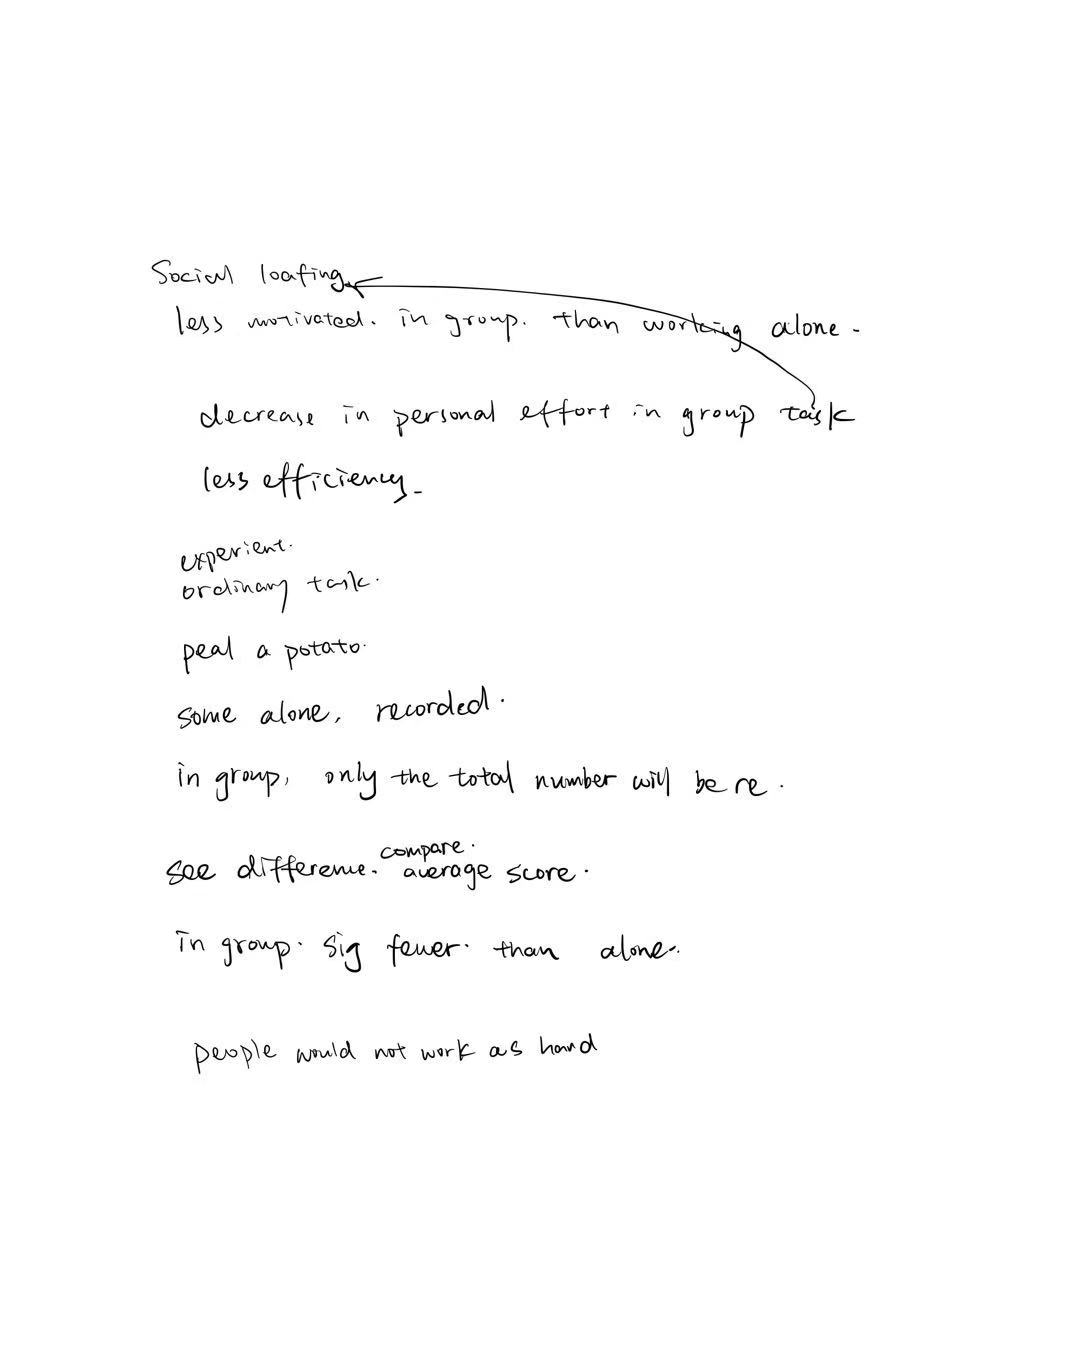 Social loafing.
less motivated. in group. than working alone.
decrease in personal effort in group task
less efficiency.
experient.
ordinary task.
peal a potato.
some alone, recorded.
in group, only the total number will be re.
compare.
see difference. average score.
in group. sig fewer. than alone.
people would not work as hand